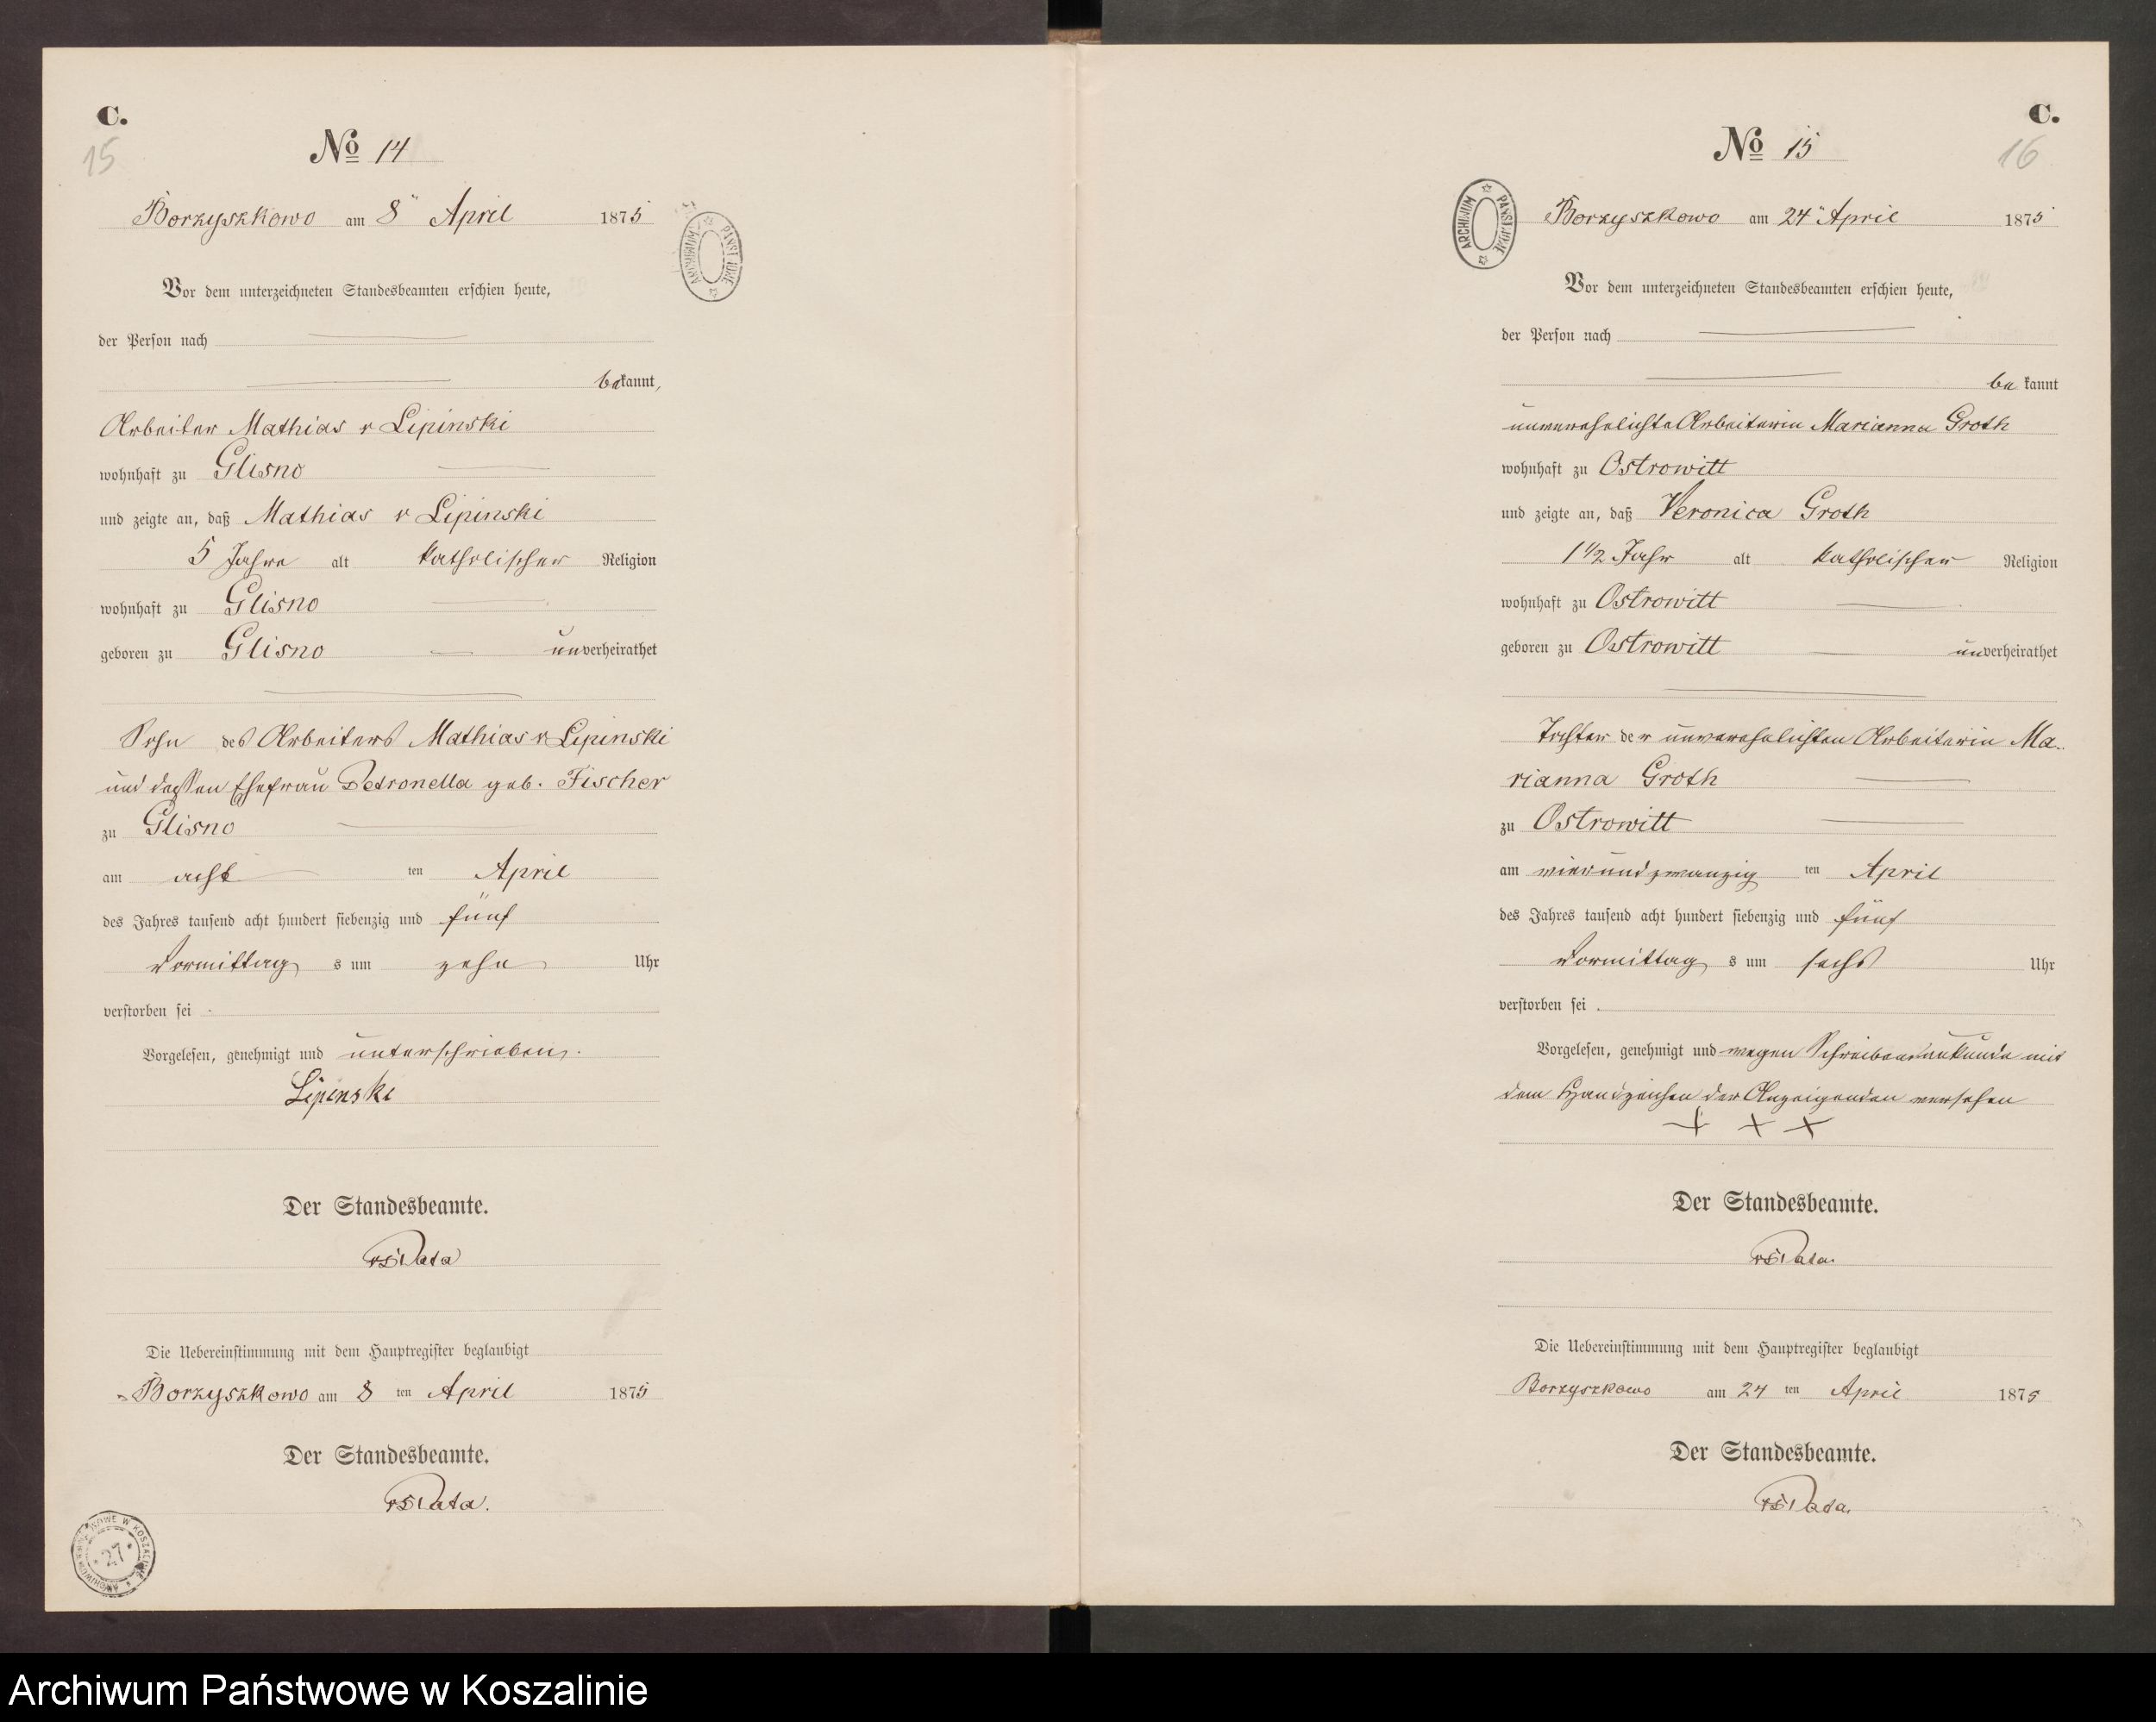 C.
15
No 14
Borzyszkowo am 8" April 1875
Vor dem unterzeichneten Standesbeamten erschien heute,
der Person nach
bekannt,
Arbeiter Mathias v Lipinski
wohnhaft zu Glisno
und zeigte an, daß Mathias v Lipinski
5 Jahre alt katholischer Religion
wohnhaft zu Glisno
geboren zu Glisno unverheirathet
Sohn des Arbeiters Mathias v Lipinski
und dessen Ehefrau Petronella geb. Fischer
zu Glisno
am acht ten April
des Jahres tausend acht hundert siebenzig und fünf
Vormittag s um zehn Uhr
verstorben sei
Vorgelesen, genehmigt und unterschrieben.
Lipinski
Der Standesbeamte.
Die Uebereinstimmung mit dem Hauptregister beglaubigt
Borzyszkowo am 8 ten April 1875
Der Standesbeamte.
ARCHIWUM PAŃSTWOWE W KOSZALINIE
27
ARCHIWUM PAŃSTWOWE
C.
16
No 15
ARCHIWUM PAŃSTWOWE
Borzyszkowo am 24" April 1875
Vor dem unterzeichneten Standesbeamten erschien heute,
der Person nach
bekannt
unverehelichte Arbeiterin Marianna Groth
wohnhaft zu Ostrowitt
und zeigte an, daß Veronica Groth
1 1/2 Jahr alt katholischer Religion
wohnhaft zu Ostrowitt
geboren zu Ostrowitt unverheirathet
Tochter der unverehelichten Arbeiterin Ma-
rianna Groth
zu Ostrowitt
am vierundzwanzig ten April
des Jahres tausend acht hundert siebenzig und fünf
Vormittag s um sechs Uhr
verstorben sei .
Vorgelesen, genehmigt und wegen Schreibensunkunde mit
dem Handzeichen der Anzeigenden versehen
+ + +
Der Standesbeamte.
Die Uebereinstimmung mit dem Hauptregister beglaubigt
Borzyszkowo am 24 ten April 1875
Der Standesbeamte.
Archiwum Państwowe w Koszalinie